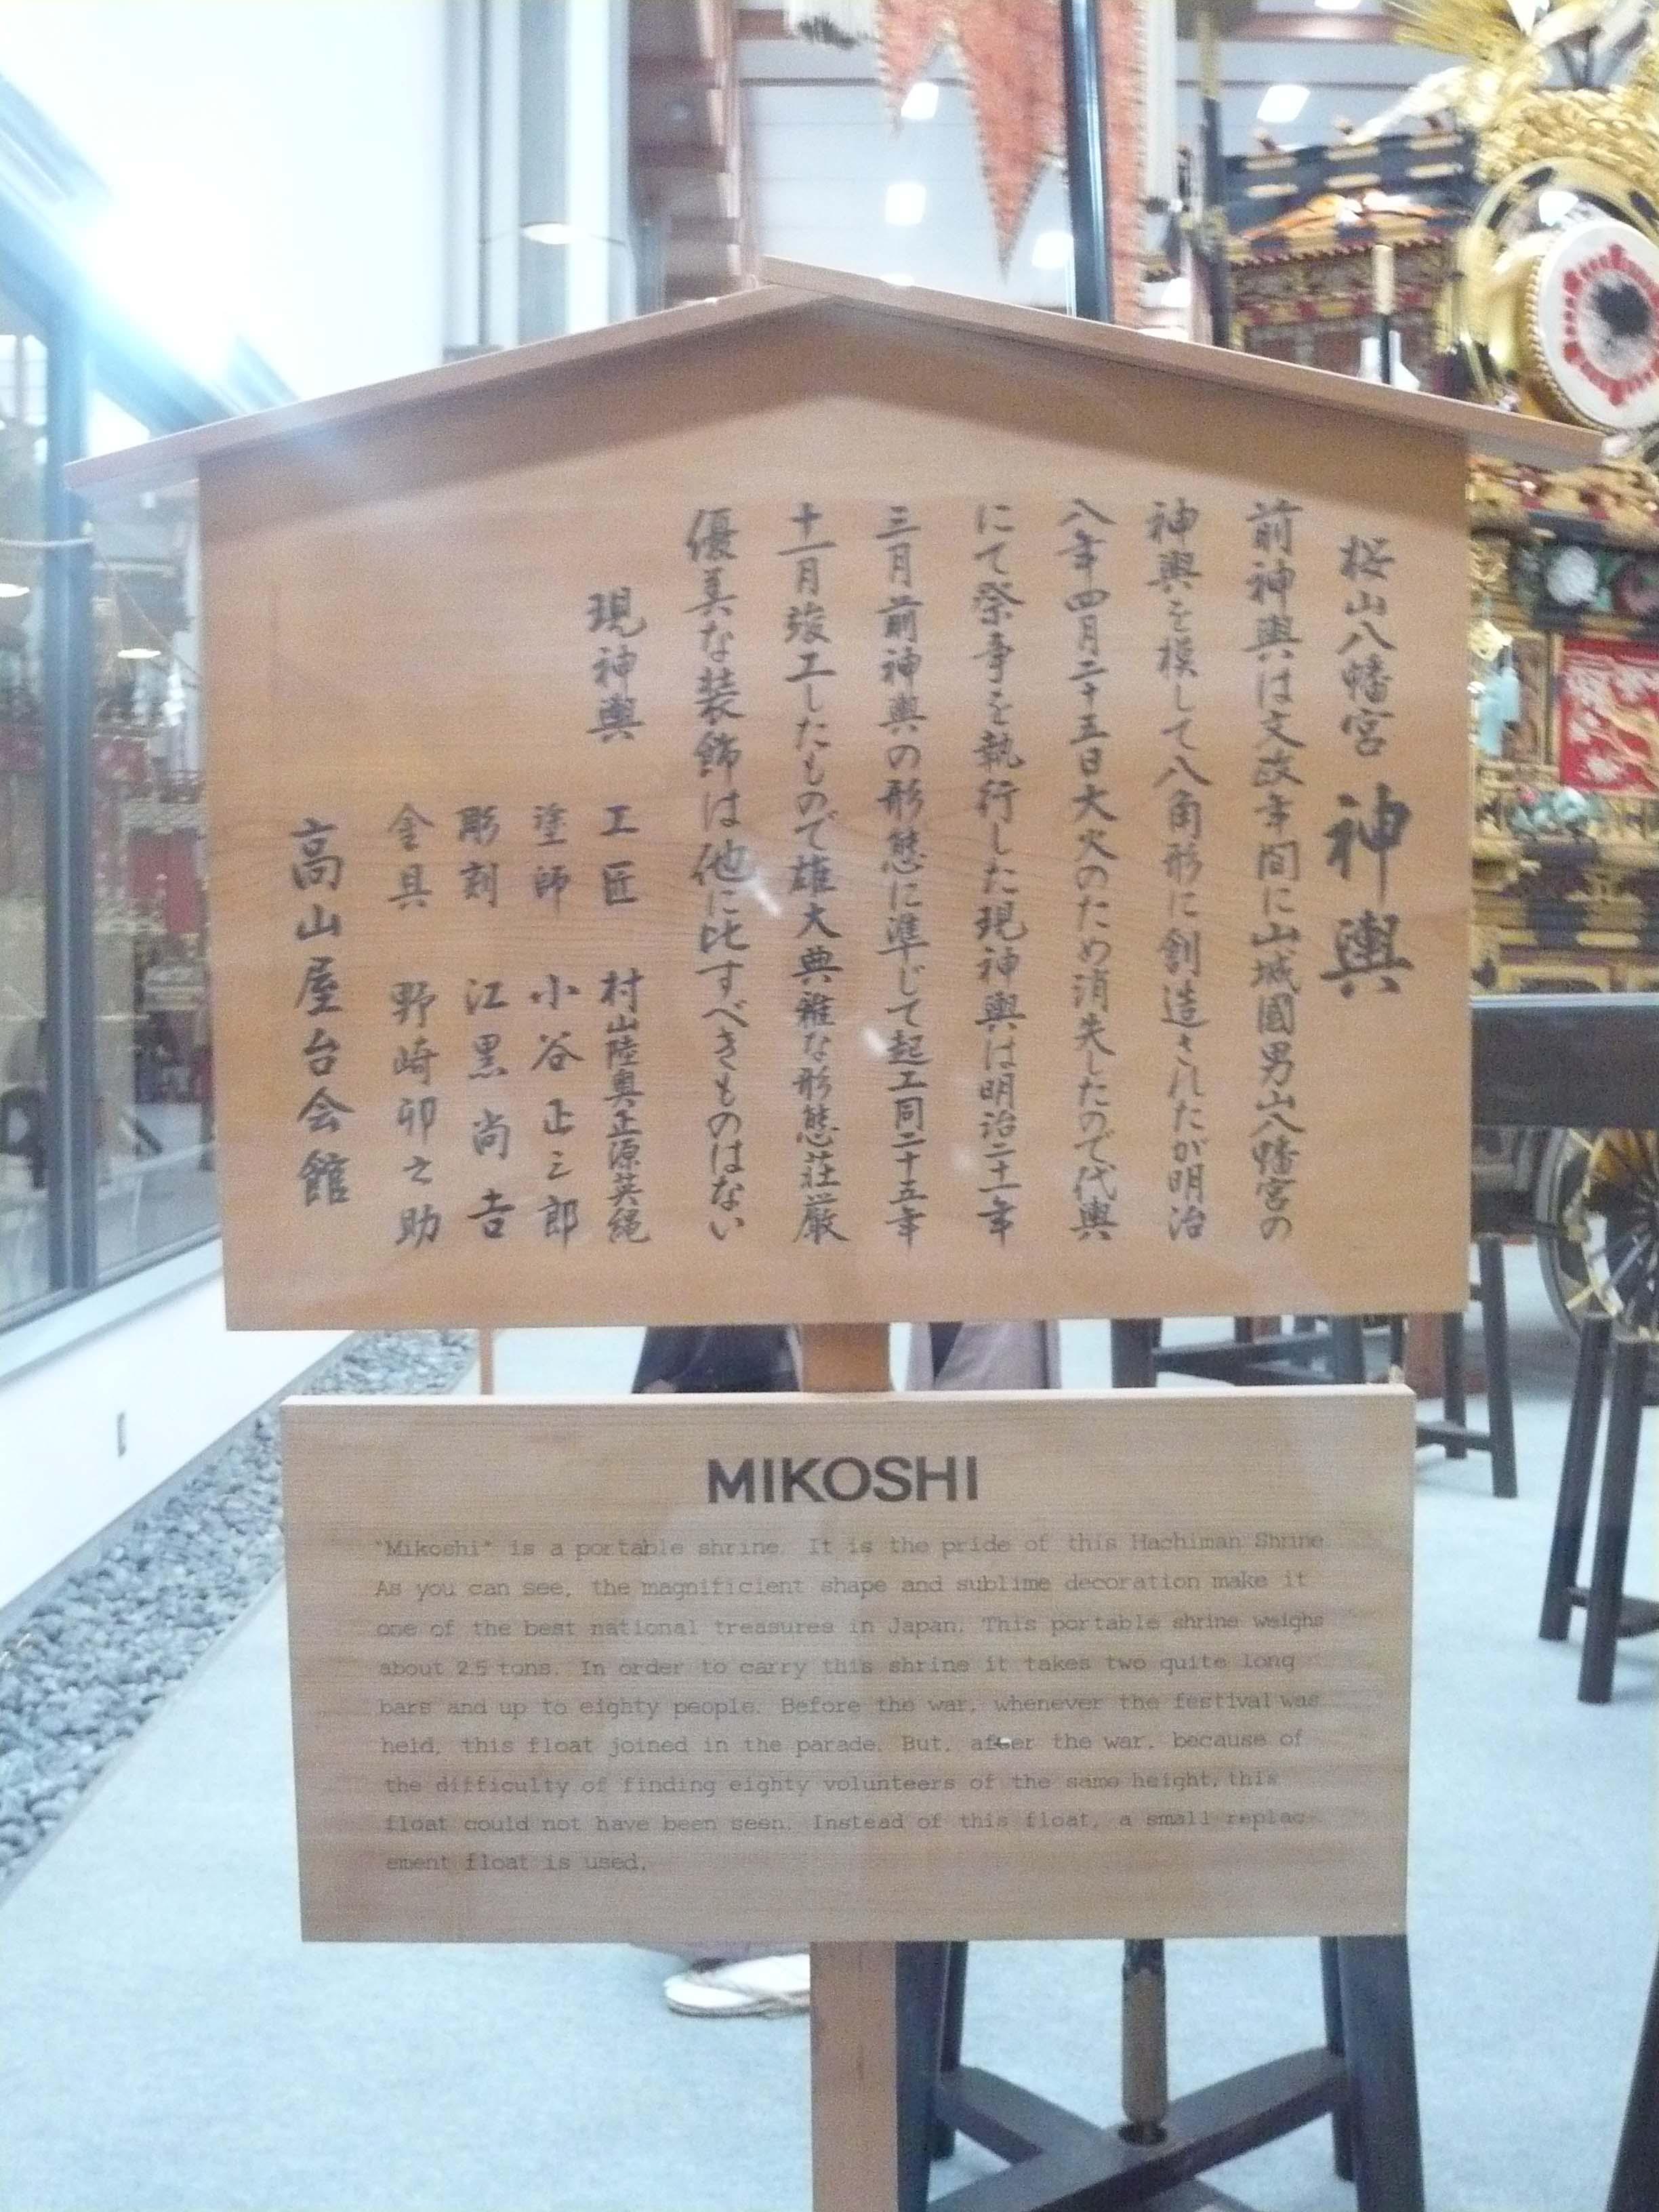 桜山八幡宮 神輿
前神輿は文政年間に山城國男山八幡宮の
神輿を模して八角形に創造されたが明治
八年四月二十五日大火のため消失したので代輿
にて祭事を執行した現神輿は明治二十一年
三月前神輿の形態に準じて起工同二十五年
十一月竣工したもので雄大典雅な形態荘厳
優美な装飾は他に比すべきものはない
現神輿 工匠 村山陸奥正源英縄
塗師 小谷正三郎
彫刻 江黒尚吉
金具 野崎卯之助
高山屋台会館
MIKOSHI
"Mikoshi" is a portable shrine. It is the pride of this Hachiman Shrine.
As you can see, the magnificient shape and sublime decoration make it
one of the best national treasures in Japan. This portable shrine weighs
about 2.5 tons. In order to carry this shrine it takes two quite long
bars and up to eighty people. Before the war, whenever the festival was
held, this float joined in the parade. But, after the war, because of
the difficulty of finding eighty volunteers of the same height, this
float could not have been seen. Instead of this float, a small replac-
ement float is used.